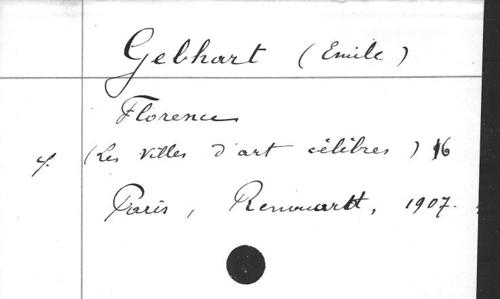 Gebhart (Emile)
Florence
4. (Les villes d'art célèbres) 16
Paris, Renouard, 1907.